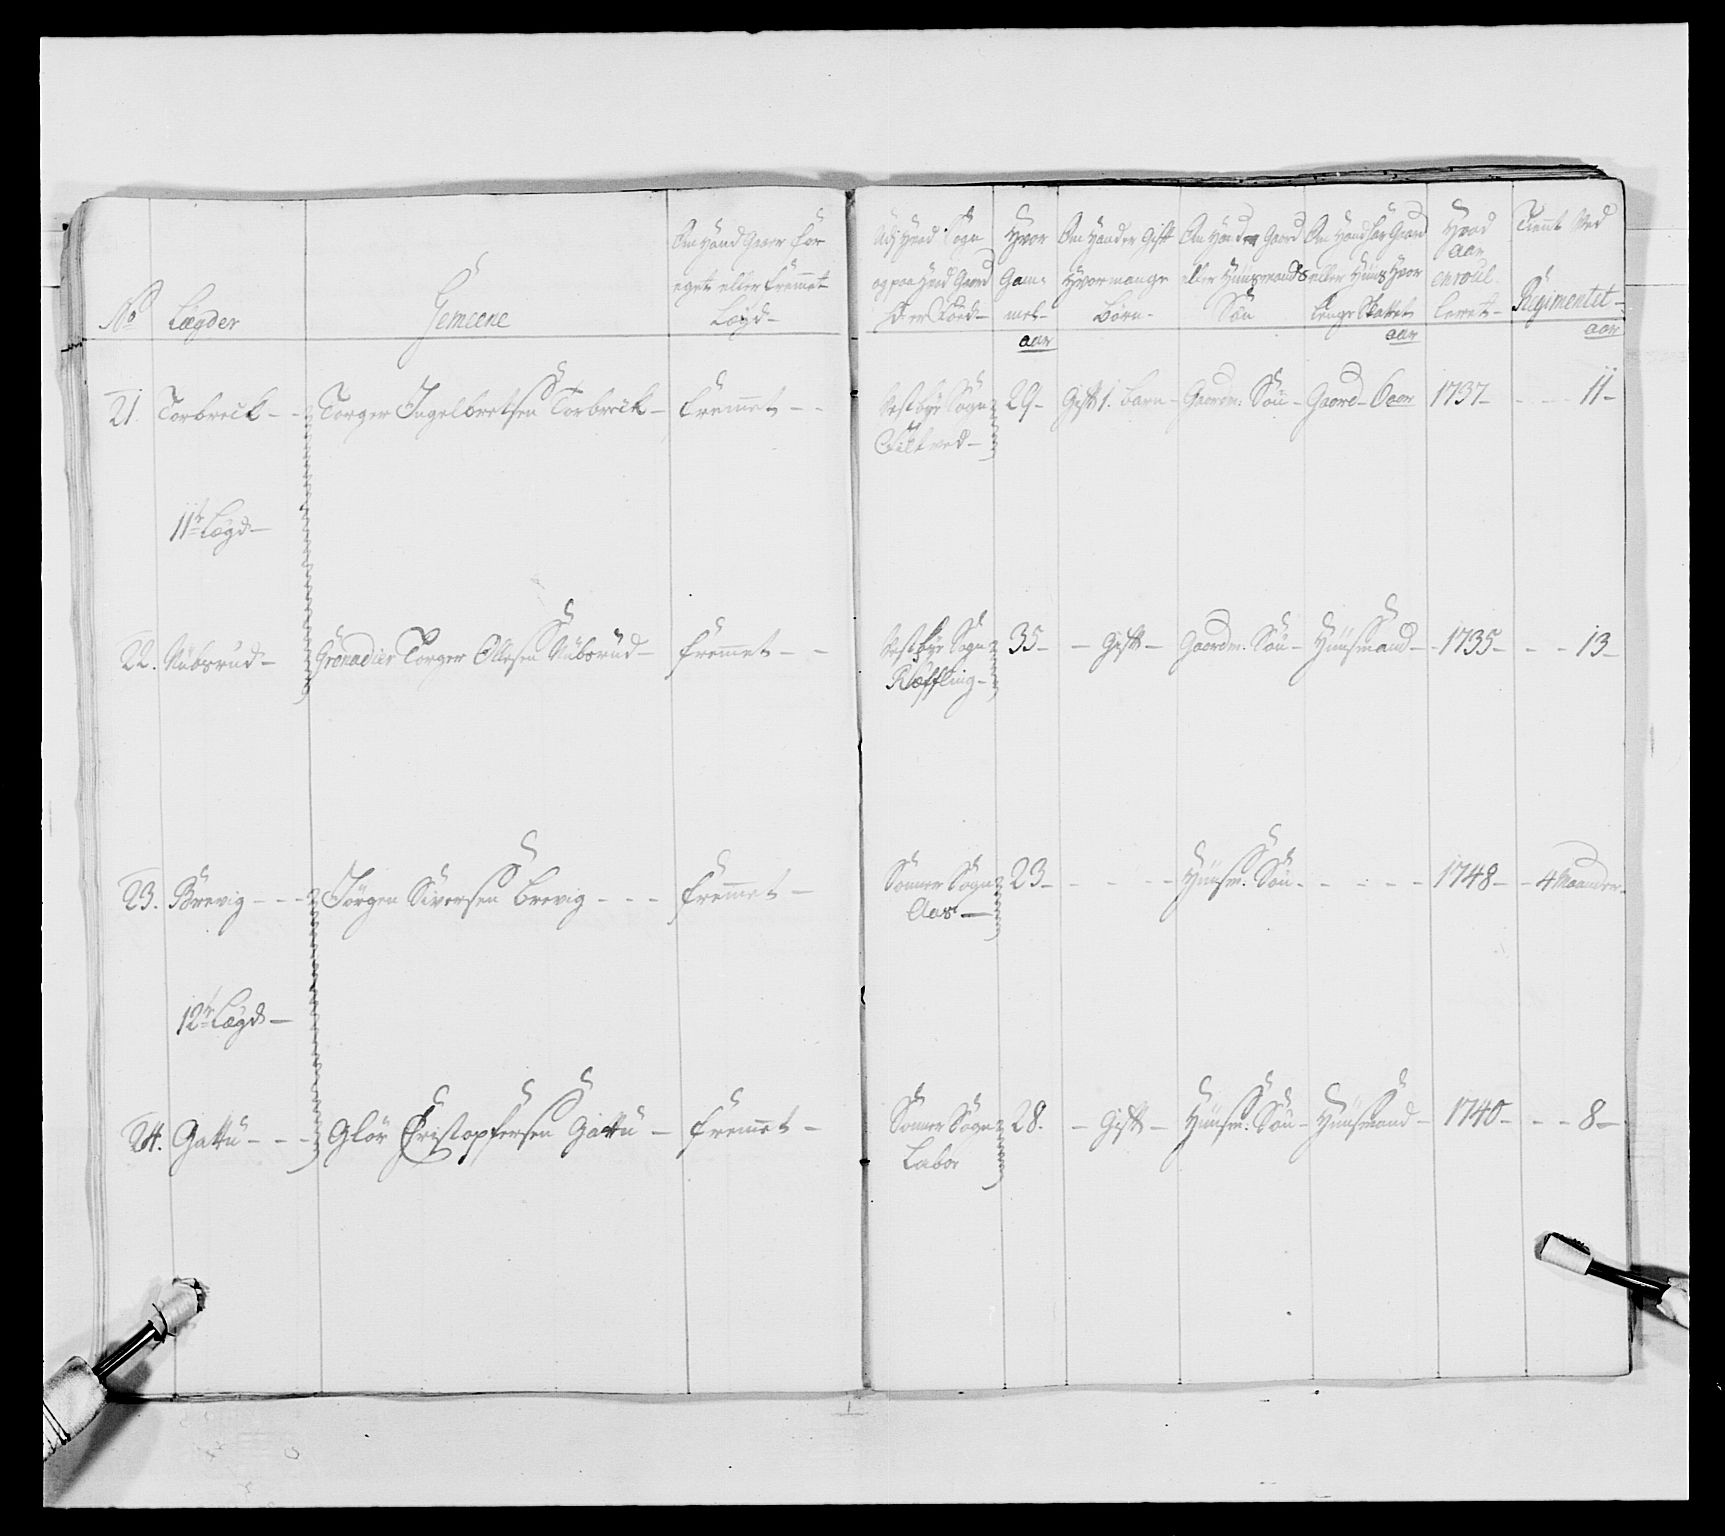 No Lægder Gemeene
Om Hand Gaaer for
eget eller fremmet
Lægd-
Udj Hvad Sogn
og paa Hvad Gaard
Hand er Föed-
Hvor
Gam-
mel-
aar
Om Hand er Gift
Hvormange
Börn-
Om Hand er Gaard
eller Huusmands
Sön
Om Hand har Gaard
eller Huus Hvor
lenge Skattet
aar
Hvad
aar
enroul-
leret-
Tient Ved
Regimentet-
aar
21. Torbreck - - Torger Ingelbretsen Torbreck - fremmet - - Vestbye Sogn 29- Gift 1. barn - Gaardm: Sön - Gaard - 6 aar 1737- - - - 11-
Filtved-
11te Lægd-
22. Nubsrud- Grenadier Torger Ollesen Nubsrud- fremmet - - Vestbye Sogn 35- - Gift - Gaardm: Sön - Huusmand - 1735- - - 13-
Kiøffling-
23. Brevig - - - Jörgen Siversen Brevig - - - fremmet - Sonner Sogn 23- - - - - Huusm: Sön - - - - - 1748- - 4 Maaneder-
Aas-
12te Lægd-
24. Gattu - - - Glör Christopfersen Gattu - fremmet - Sonner Sogn 28. - Gift - Huusm: Sön - Huusmand - 1740- - - 8-
Labor